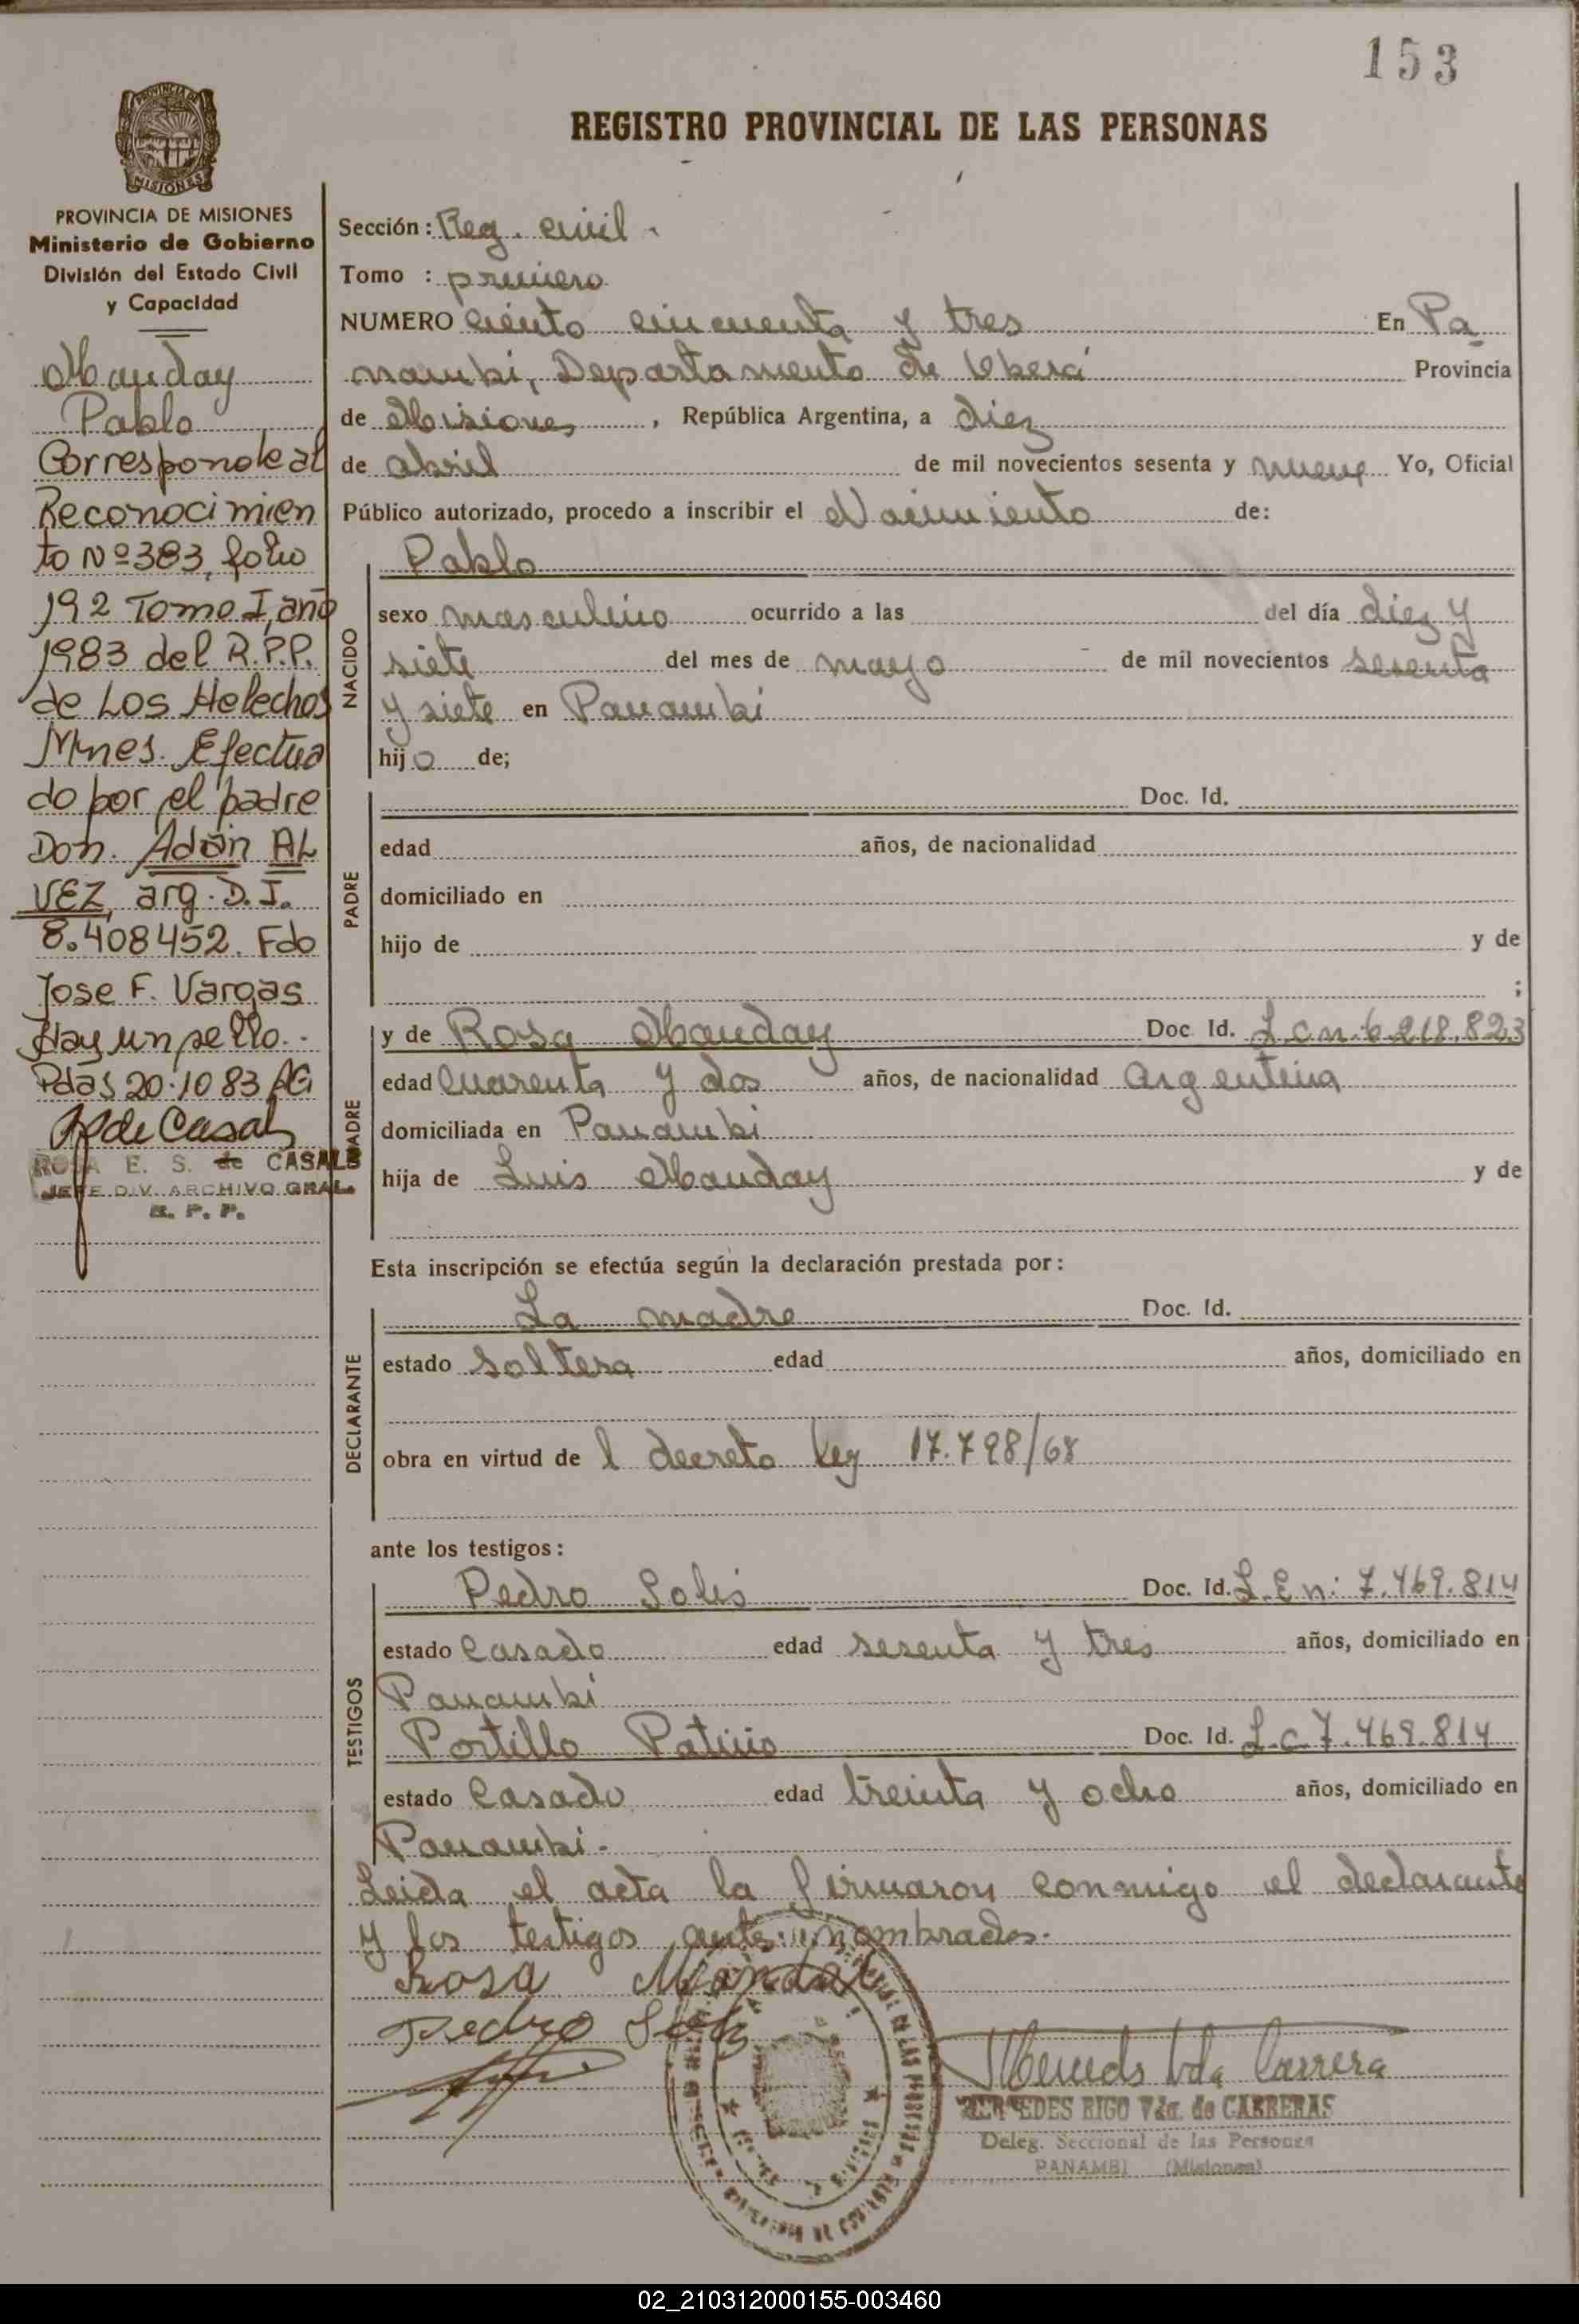 153
REGISTRO PROVINCIAL DE LAS PERSONAS
PROVINCIA DE MISIONES
Ministerio de Gobierno
División del Estado Civil
y Capacidad
Mauday
Pablo
Corresponde al
Reconocimien
to Nº 383, folio
192 Tomo I, año
1983 del R.P.P.
de Los Helechos
Mnes. Efectua
do por el padre
Don. Adán AL
VEZ, arg. D.I.
8.408452. Fdo
Jose F. Vargas
Hay un sello.-
Pdas 20.10 83
R de Casals
ROSA E. S. de CASALS
JEFE DIV. ARCHIVO GRAL.
R. P. P.
Sección: Reg. civil.
Tomo : primero
NUMERO ciento cincuenta y tres En Pa
nambi, Departamento de Oberá Provincia
de Misiones, República Argentina, a diez
de abril de mil novecientos sesenta y nueve Yo, Oficial
Público autorizado, procedo a inscribir el Nacimiento de:
NACIDO
Pablo
sexo masculino ocurrido a las del día diez y
siete del mes de mayo de mil novecientos sesenta
y siete en Panambi
hijo de;
PADRE
Doc. Id.
edad años, de nacionalidad
domiciliado en
hijo de y de
;
MADRE
y de Rosa Mauday Doc. Id. L c n: 6.218.823
edad cuarenta y dos años, de nacionalidad Argentina
domiciliada en Panambi
hija de Luis Mauday y de
Esta inscripción se efectúa según la declaración prestada por:
DECLARANTE
La madre Doc. Id.
estado soltera edad años, domiciliado en
obra en virtud de l decreto ley 17.798/68
ante los testigos:
TESTIGOS
Pedro Solis Doc. Id. L.E n: 7.469.814
estado casado edad sesenta y tres años, domiciliado en
Panambi
Portillo Patricio Doc. Id. L.c 7.469.814
estado casado edad treinta y ocho años, domiciliado en
Panambi.-
Leida el acta la firmaron conmigo el declarante
y los testigos ante nombrados.-
Rosa
Pedro Solis
Vda Carrera
MERCEDES RIGO Vda. de CARRERAS
Deleg. Seccional de las Personas
PANAMBI (Misiones)
02_210312000155-003460